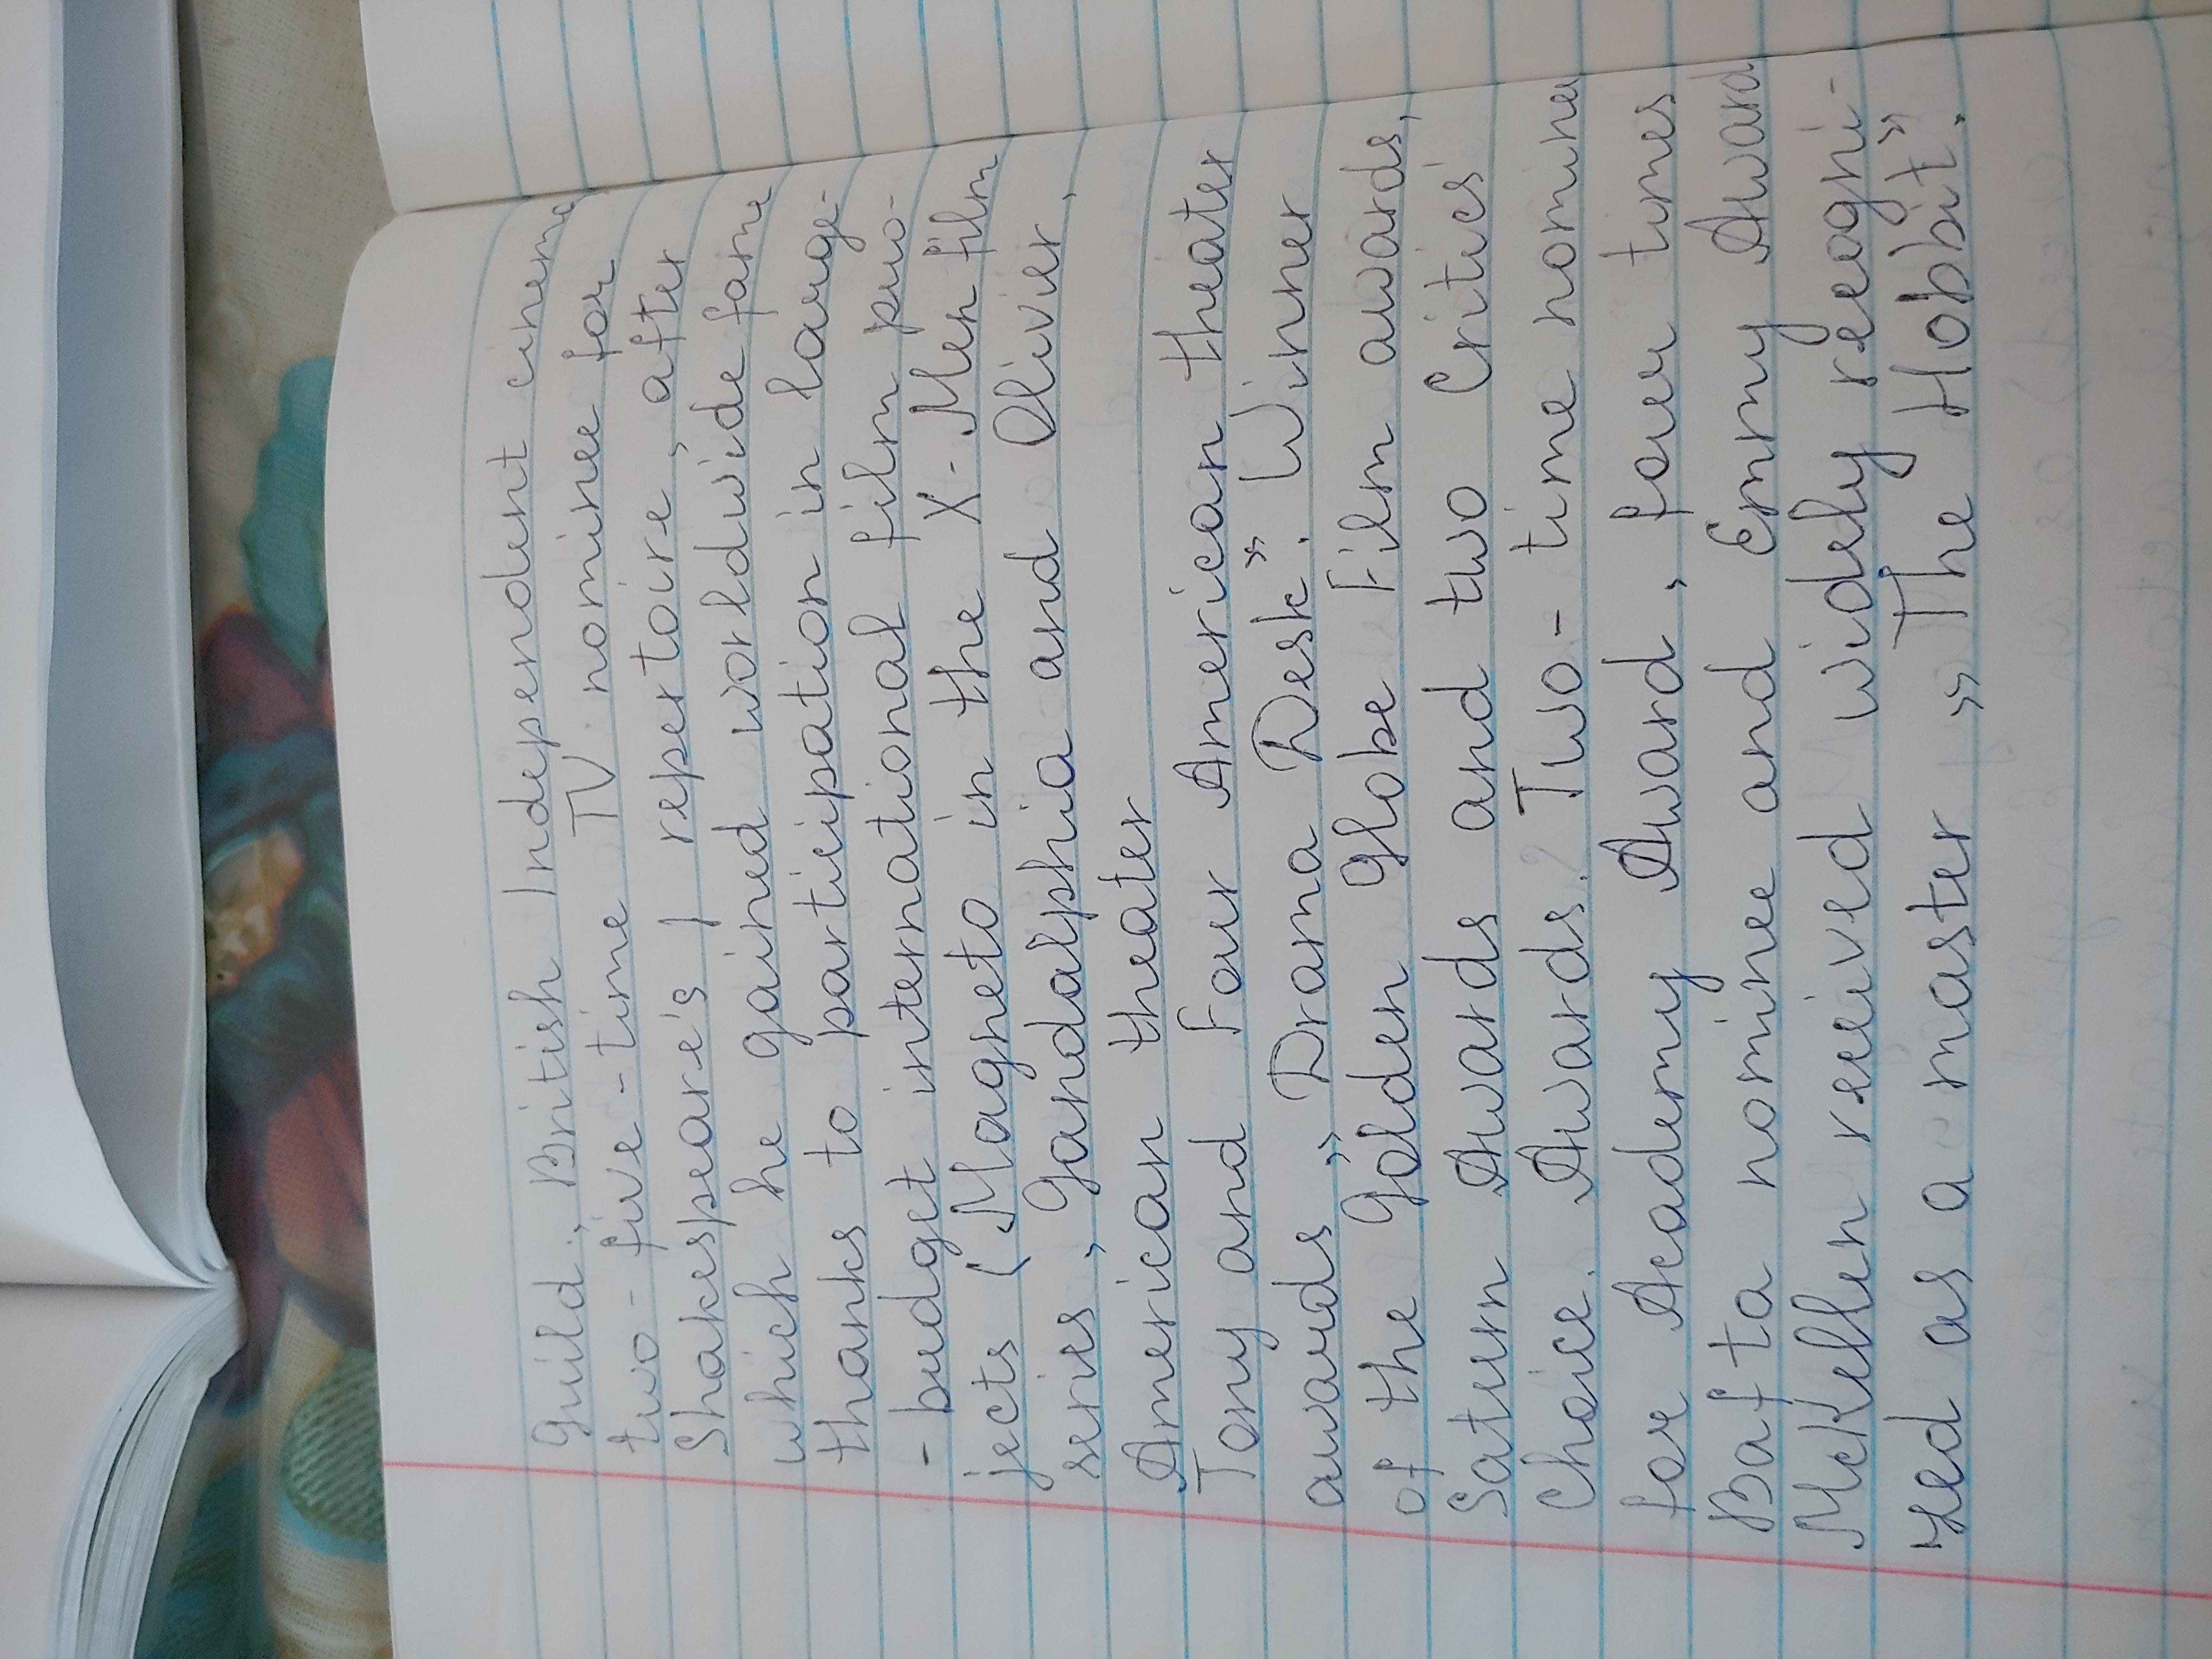 Guild, British Independent cinema,
two-five-time TV nominee for
Shakespeare's | repertoire, after
which he gained worldwide fame
thanks to participation in large-
-budget international film pro-
jects (Magneto in the X-Men film
series, Gandalphia and Olivier,
American theater
Tony and Four American theater
awards „Drama Desk”. Winner
of the Golden Globe Film awards,
Saturn Awards and two Critics'
Choice Awards. Two-time nominee
for Academy Award, four times
Bafta nominee and Emmy Award
McKellen reeived widely reeogni-
zed as a master „The Hobbit”.